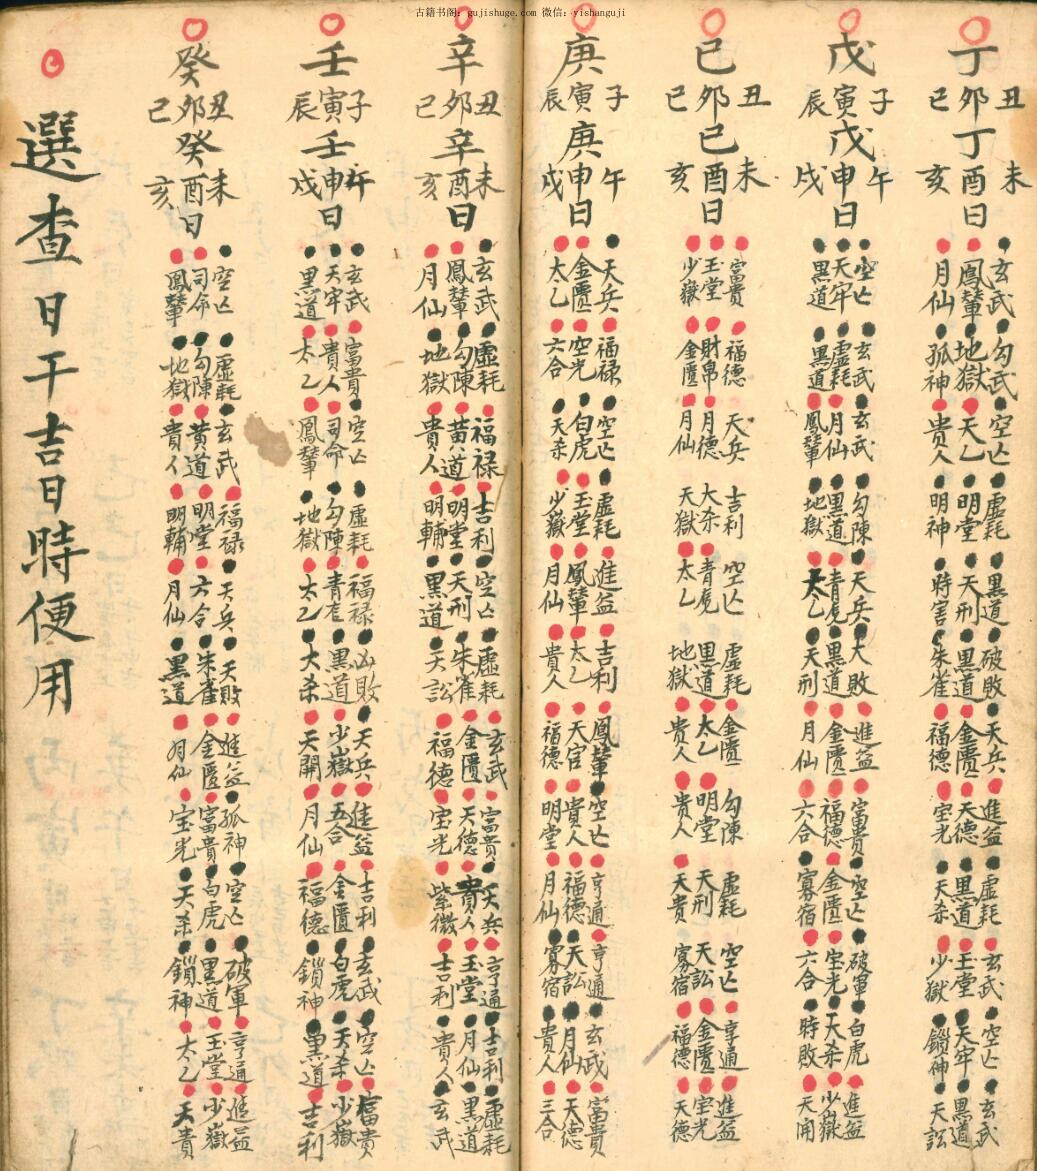 古籍书阁：gujishuge.com 微信：yishanguji
丁
丑卯巳
丁
未酉亥
日
玄武 鳳輦 月仙
勾武 地獄 孤神
空亡 天乙 貴人
虛耗 明堂 明神
黑道 天刑 時害
破敗 黑道 朱雀
天兵 金匱 福德
進益 天德 宝光
虛耗 黑道 天杀
玄武 玉堂 少獄
空亡 天牢 鎖神
玄武 黑道 天訟
戊
子寅辰
戊
午申戌
日
空亡 天牢 黑道
玄武 虛耗 黑道
玄武 月仙 鳳輦
勾陳 黑道 地獄
天兵 青竜 太乙
大敗 黑道 天刑
進益 金匱 月仙
富貴 福德 六合
空亡 金匱 寡宿
破軍 宝光 六合
白虎 天杀 時敗
進益 少嶽
己
丑卯巳
己
未酉亥
日
富貴 玉堂 少嶽
福德 財帛 金匱
天兵 月德 月仙
吉利 大杀 天獄
空亡 青竜 太乙
虛耗 黑道 地獄
金匱 太乙 貴人
勾陳 明堂 貴人
虛耗 天刑 天贵
空亡 天訟 寡宿
亨通 金匱 福德
進益 宝光 天德
庚
子寅辰
庚
午申戌
日
天兵 金匱 太乙
福禄 空光 六合
空亡 白虎 天杀
虛耗 玉堂 少嶽
進益 鳳輦 月仙
吉利 太乙 貴人
鳳輦 天官 福德
空亡 貴人 明堂
亨通 福德 月仙
亨通 天訟 寡宿
玄武 月仙 貴人
富貴 天德 三合
辛
丑卯巳
辛
未酉亥
日
玄武 鳳輦 月仙
虛耗 勾陳 地獄
福禄 黄道 貴人
吉利 明堂 明輔
空亡 天刑 黑道
虛耗 朱雀 天訟
玄武 金匱 福德
富貴 天德 宝光
天兵 貴人 紫微
亨通 玉堂 吉利
吉利 月仙 貴人
虛耗 黑道 玄武
壬
子寅辰
壬
午申戌
日
玄武 天牢 黑道
富貴 貴人 太乙
空亡 司命 鳳輦
虛耗 勾陳 地獄
福禄 青竜 太乙
凶敗 黑道 大杀
天兵 少嶽 天開
進益 五合 月仙
吉利 金匱 福德
玄武 白虎 鎖神
空亡 天杀 黑道
福貴 少嶽 吉利
癸
丑卯巳
癸
未酉亥
日
空亡 司命 鳳輦
虛耗 勾陳 地獄
玄武 黄道 貴人
福禄 明堂 明輔
天兵 六合 月仙
天敗 朱雀 黑道
進益 金匱 月仙
孤神 富貴 宝光
空亡 白虎 天杀
破軍 黑道 鎖神
亨通 玉堂 太乙
進益 少嶽 天貴
選查日干吉日時便用